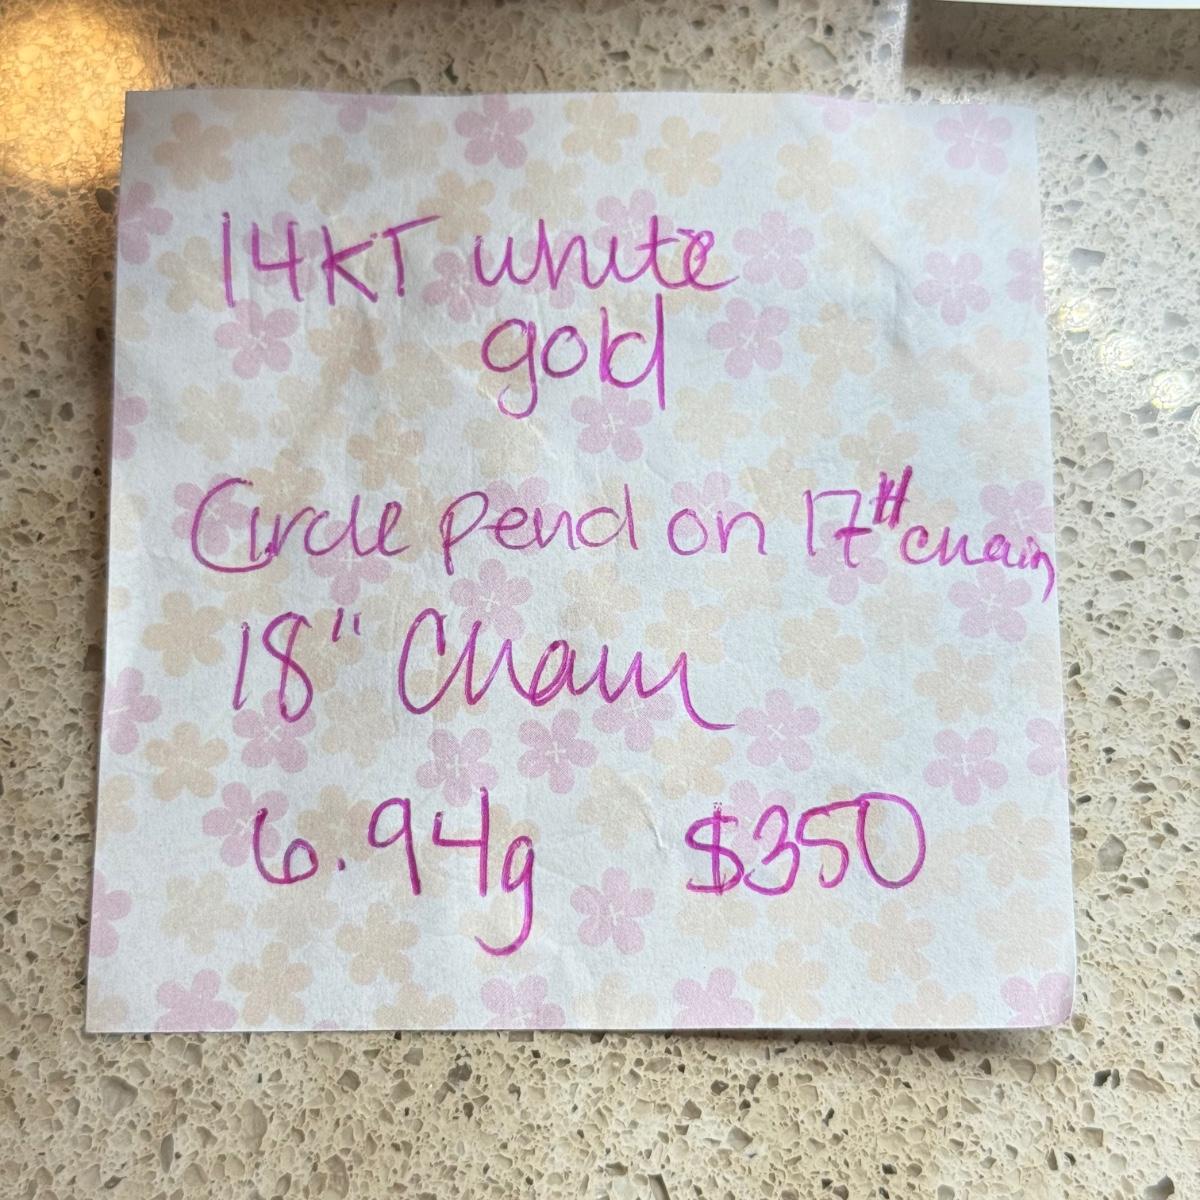 14KT white
gold
Circle pend on 17" chain
18" Chain
6.94g $350